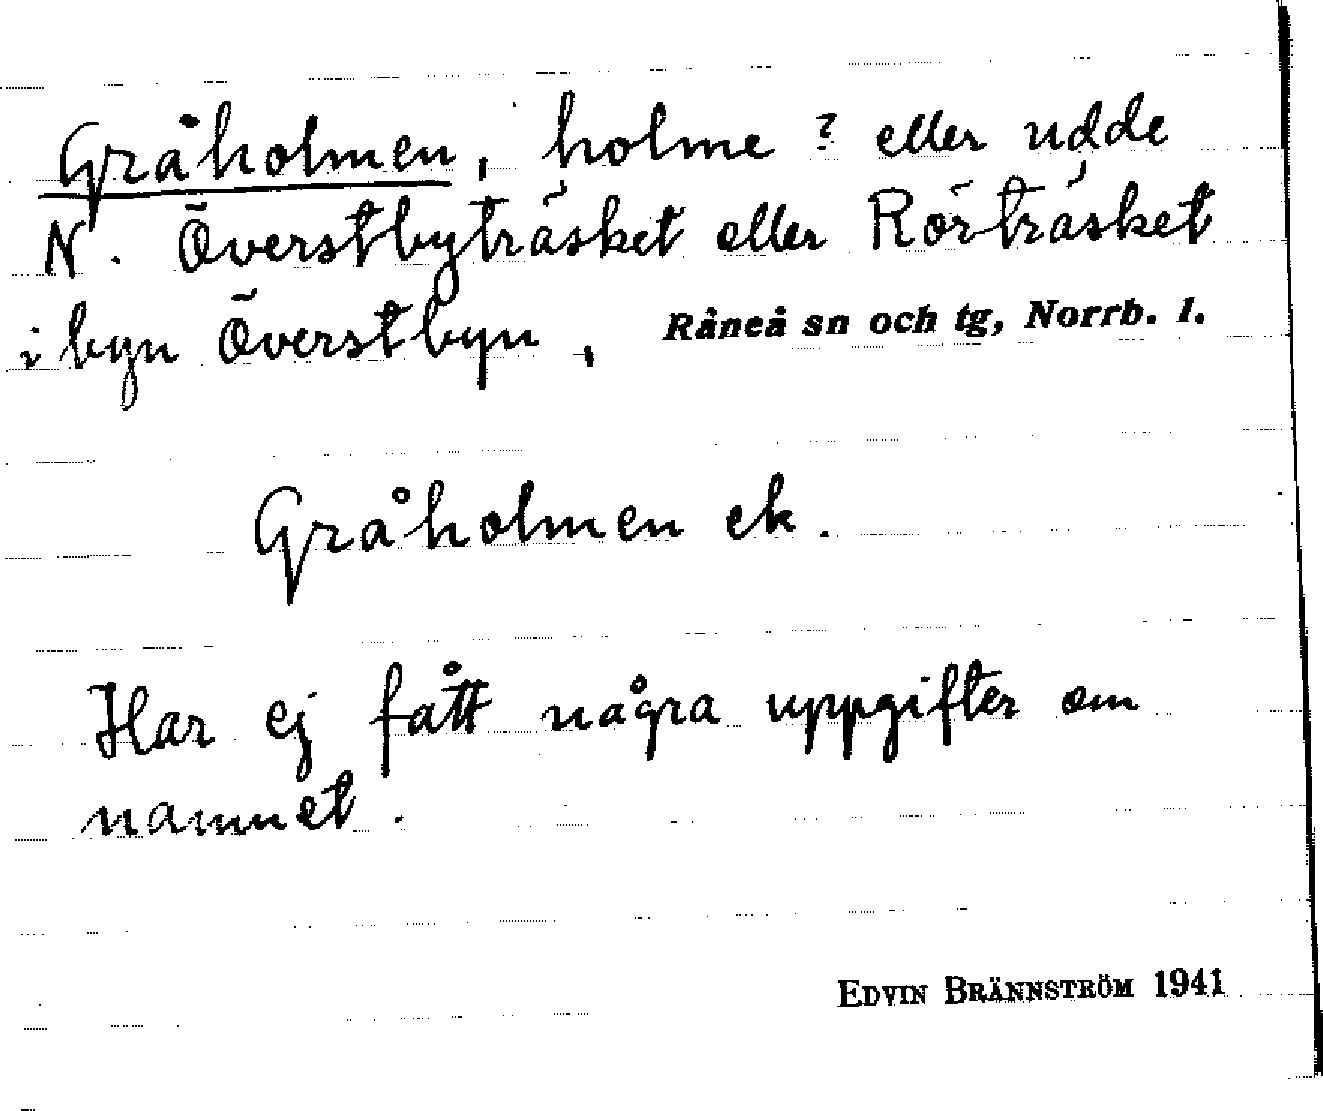 Gråholmen, holme? eller udde
N. Överstbyträsket eller Rörträsket
i byn Överstbyn, Råneå sn och tg, Norrb. l.
Gråholmen ek.
Har ej fått några uppgifter om
namnet.
EDVIN BRÄNNSTRÖM 1941